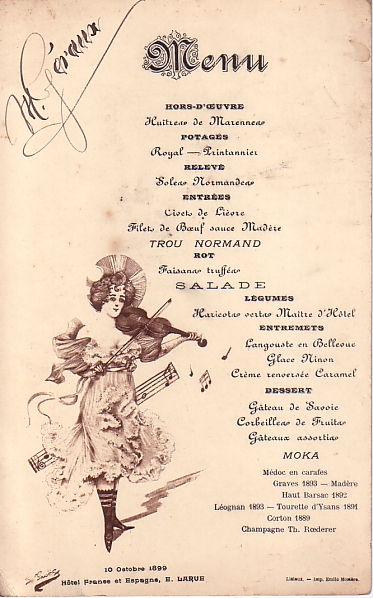 M. Géraux
Menu
HORS-D'ŒUVRE
Huîtres de Marennes
POTAGES
Royal — Printannier
RELEVÉ
Soles Normandes
ENTRÉES
Civet de Lièvre
Filet de Bœuf sauce Madère
TROU NORMAND
ROT
Faisans truffés
SALADE
LÉGUMES
Haricots verts Maître d'Hôtel
ENTREMETS
Langouste en Bellevue
Glace Ninon
Crème renversée Caramel
DESSERT
Gâteau de Savoie
Corbeilles de Fruits
Gâteaux assortis
MOKA
Médoc en carafes
Graves 1893 — Madère
Haut Barsac 1892
Léognan 1893 — Tourette d'Ysans 1891
Corton 1889
Champagne Th. Rœderer
10 Octobre 1899
Hôtel France et Espagne, E. LARUE
Lisieux. — Imp. Emile Morière.